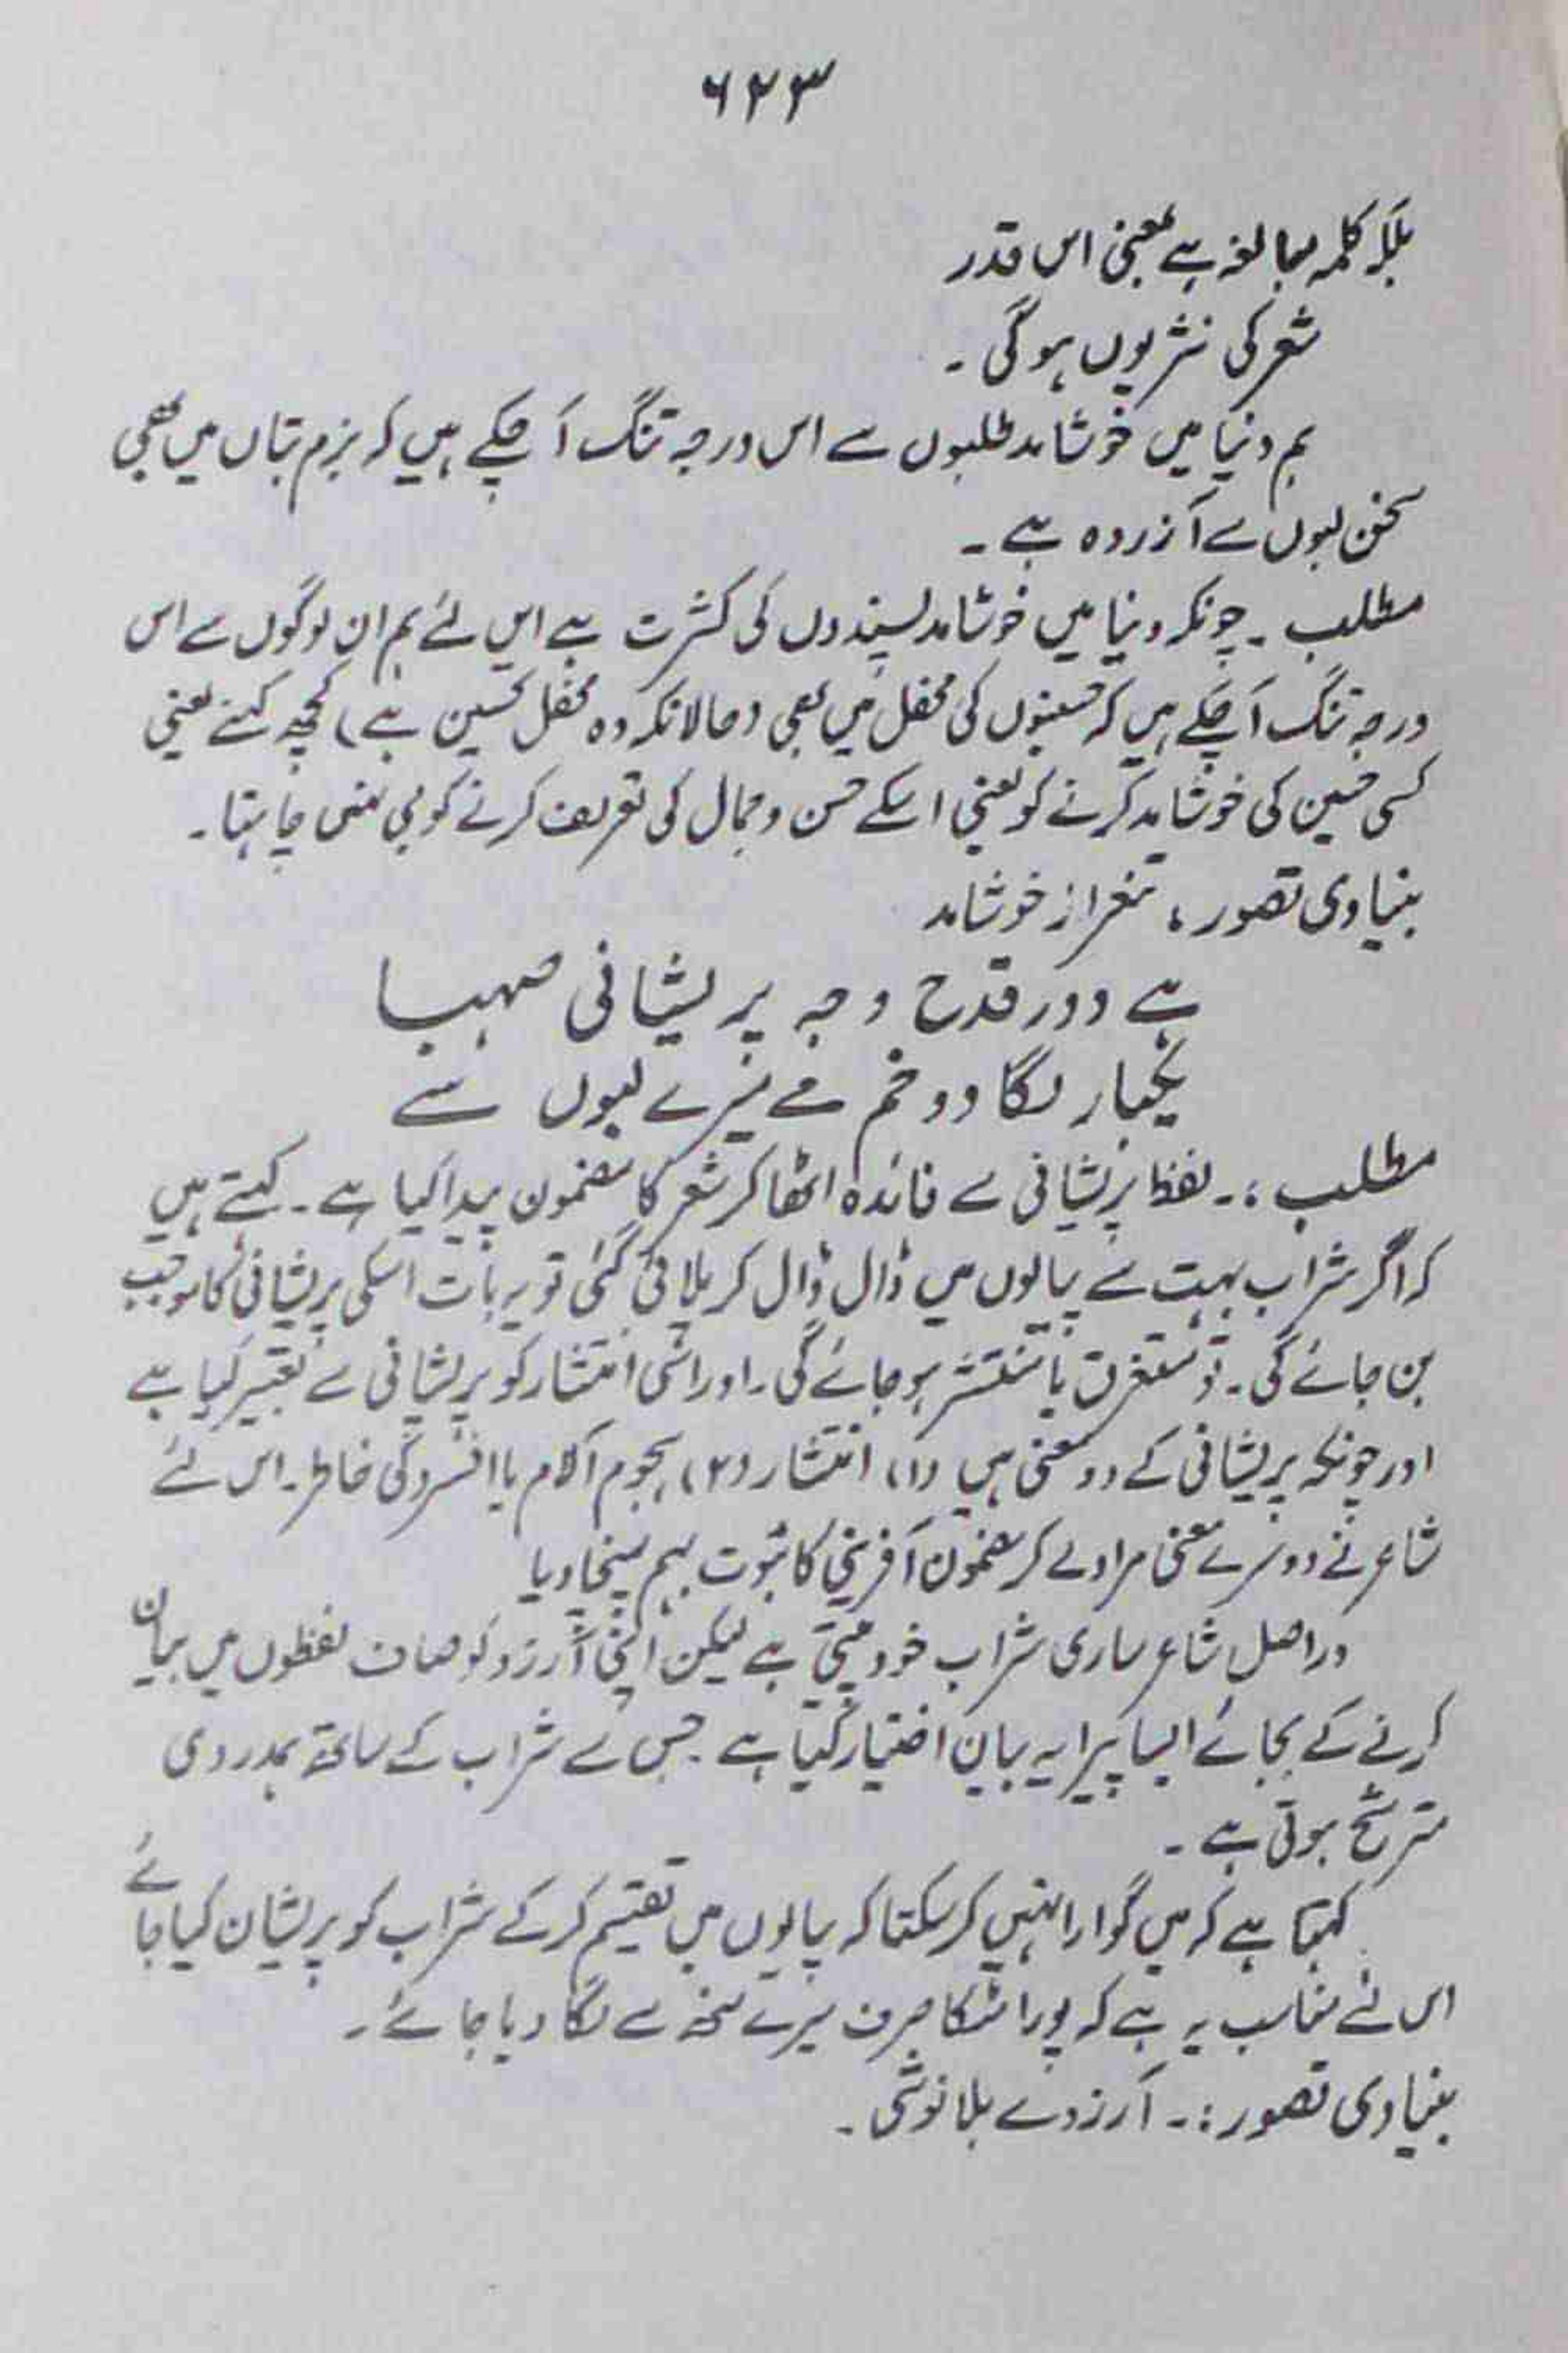 ۶۲۳
بلکہ کلمہ مبالغہ ہے بمعنی اس قدر
شعر کی نثر یوں ہوگی ۔
ہم دنیا میں خوشامد طلبوں سے اس درجہ تنگ آ چکے ہیں کہ بزم بتاں میں بھی
سخن لبوں سے آزردہ ہے ۔
مطلب ۔ چونکہ دنیا میں خوشامد پسندوں کی کثرت ہے اس لئے ہم ان لوگوں سے اس
درجہ تنگ آ چکے ہیں کہ حسینوں کی محفل میں بھی (حالانکہ وہ محفل تحسین ہے) کچھ کہنے یعنی
کسی حسین کی خوشامد کرنے کو یعنی اسکے حسن و جمال کی تعریف کرنے کو جی نہیں چاہتا ۔
بنیادی تصور ، تنفر از خوشامد
ہے دور قدح وجہ پریشانی صہبا
یکبار لگا دو خم مے میرے لبوں سے
مطلب :۔ لفظ پریشانی سے فائدہ اٹھا کر شعر کا مضمون پیدا کیا ہے ۔ کہتے ہیں
کہ اگر شراب بہت سے پیالوں میں ڈال ڈال کر پلائی گئی تو یہ بات اسکی پریشانی کا موجب
بن جائے گی ۔ تو متفرق یا منتشر ہو جائے گی ۔ اور اسی انتشار کو پریشانی سے تعبیر کیا ہے
اور چونکہ پریشانی کے دو معنی ہیں (۱) انتشار (۲) ہجوم آلام یا افسردگی خاطر ۔ اس لئے
شاعر نے دوسرے معنی مراد لے کر مضمون آفرینی کا ثبوت بہم پہنچا دیا
دراصل شاعر ساری شراب خود پیتی ہے لیکن اپنی آرزو کو صاف لفظوں میں بیان
کرنے کے بجائے ایسا پیرایہ بیان اختیار کیا ہے ۔ جس سے شراب کے ساتھ ہمدردی
مترشح ہوتی ہے ۔
کہتا ہے کہ میں گوارا نہیں کر سکتا کہ پیالوں میں تقسیم کر کے شراب کو پریشان کیا جائے
اس لئے مناسب یہ ہے کہ پورا مٹکا صرف میرے منھ سے لگا دیا جائے ۔
بنیادی تصور :۔ آرزوے بلا نوشی ۔